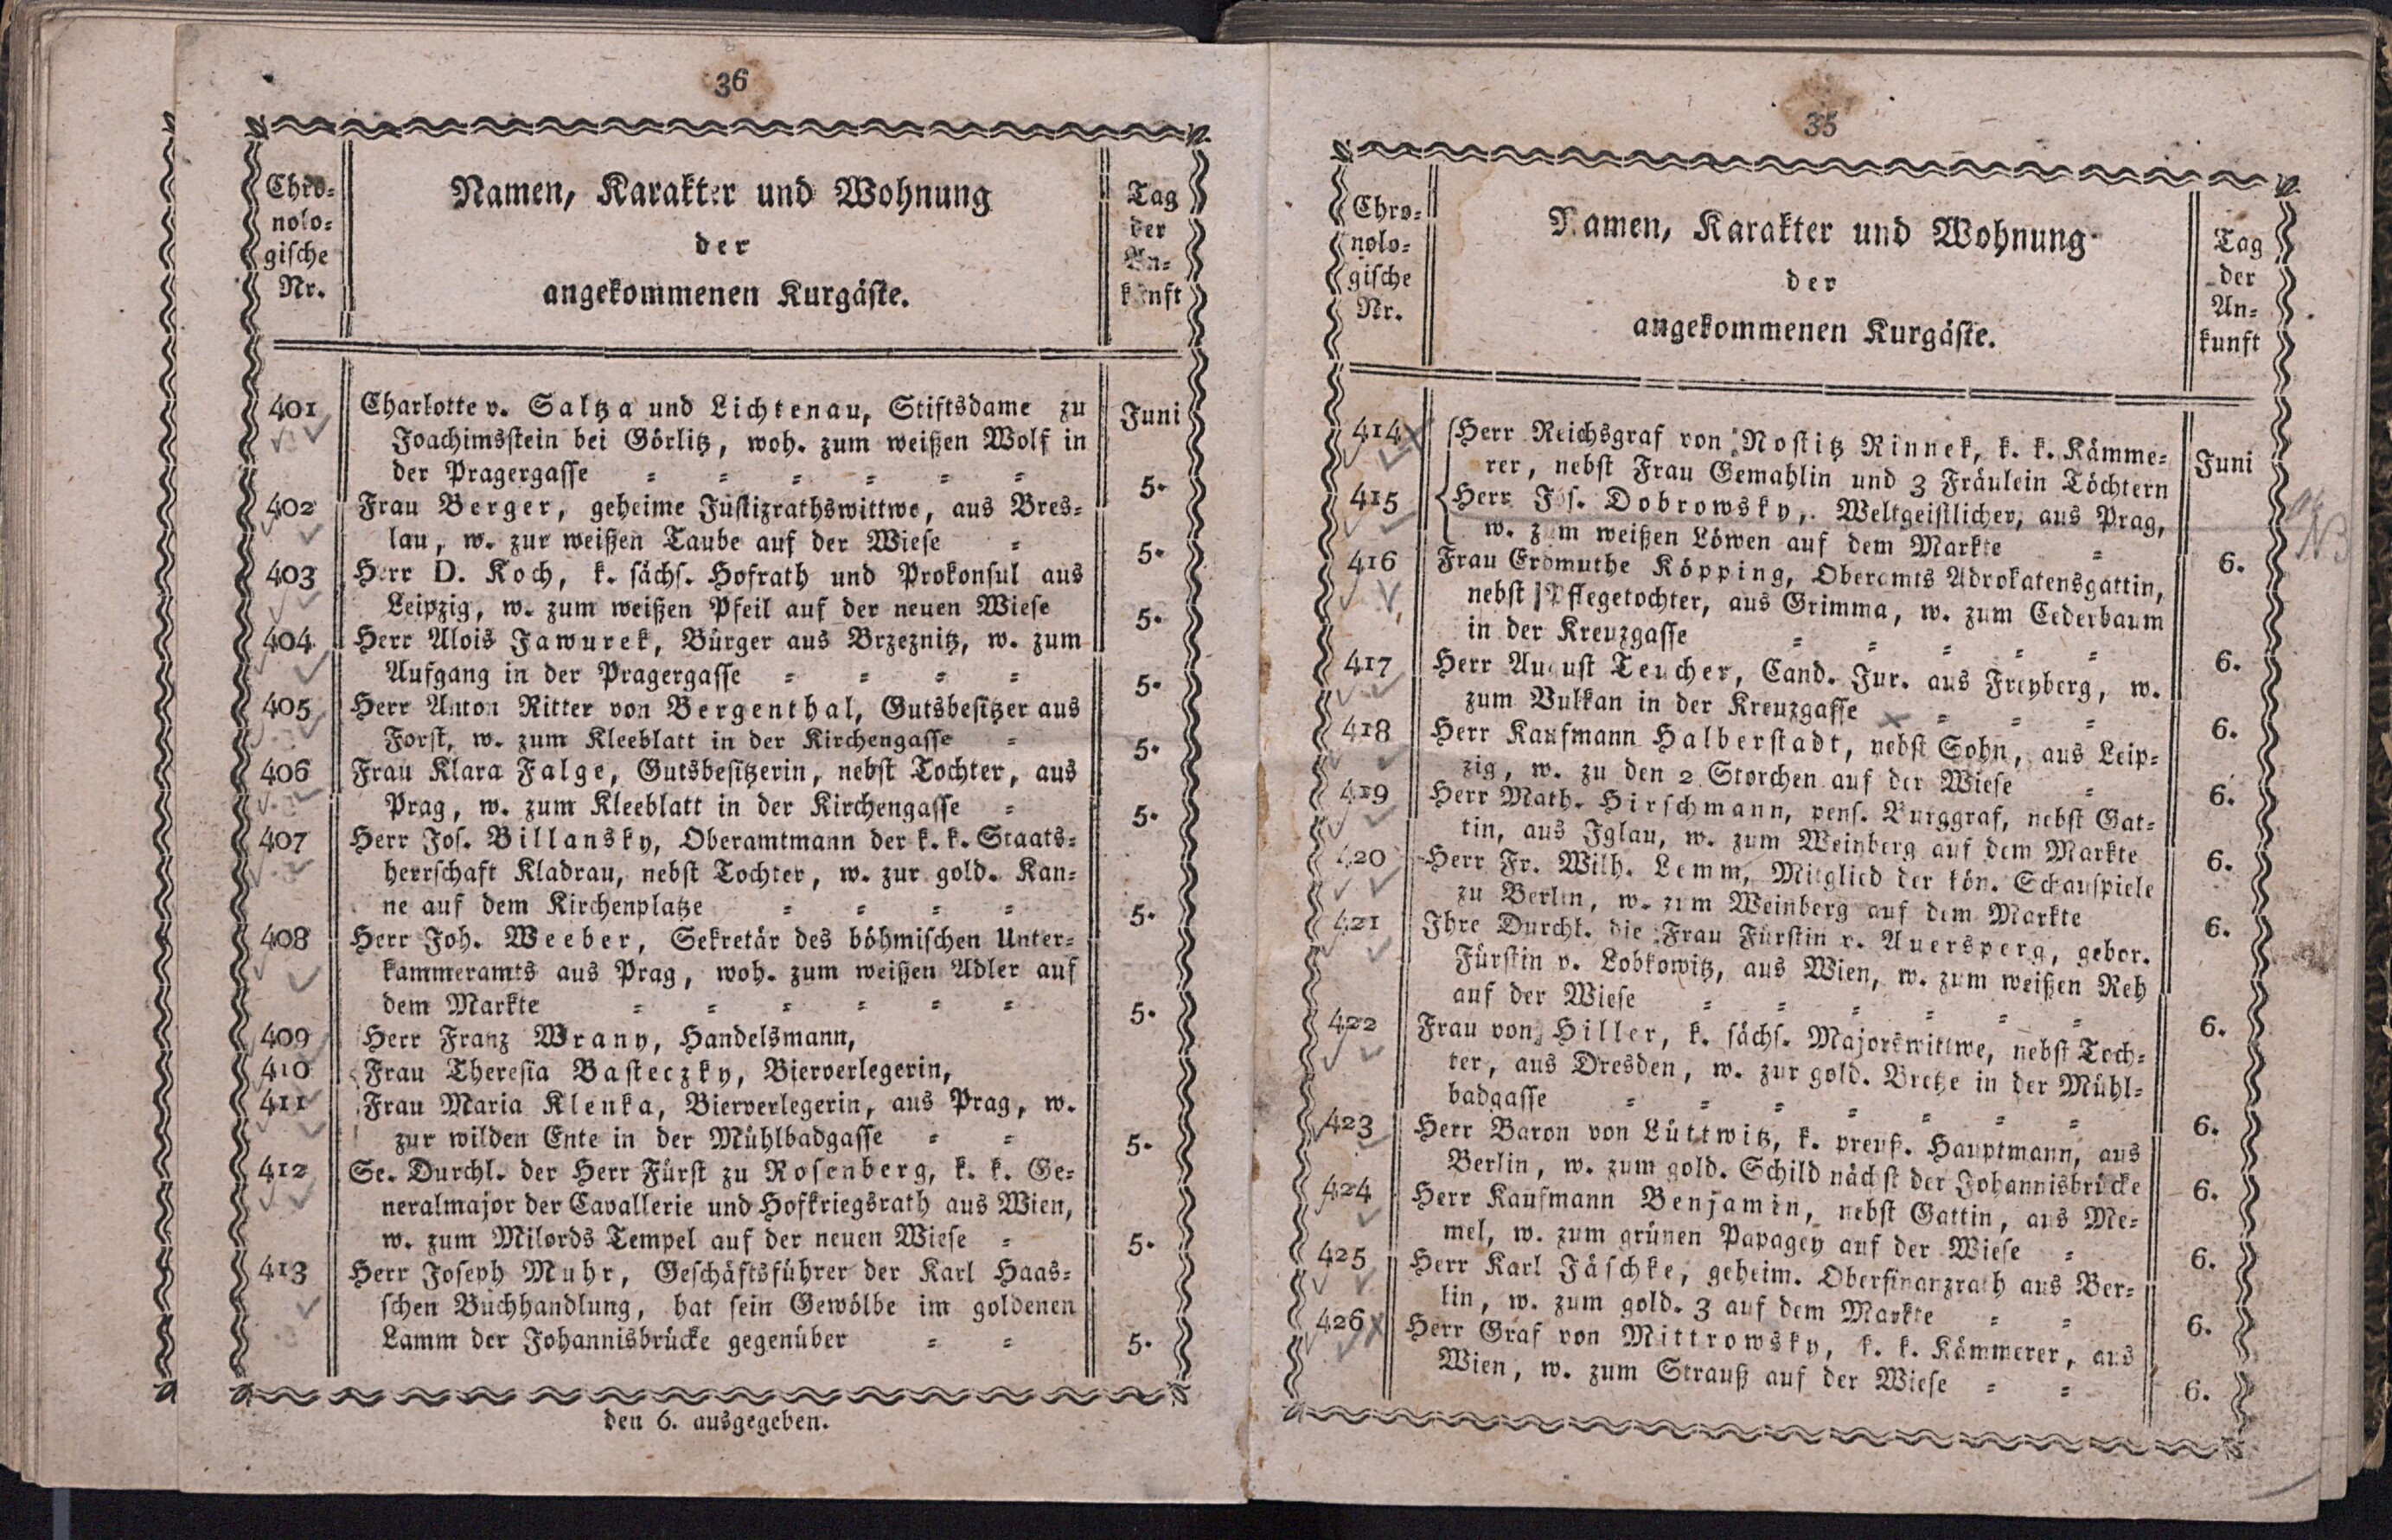 36
Chro-
nolo-
gische
Nr.
Namen, Karakter und Wohnung
der
angekommenen Kurgäste.
Tag
der
An-
kunft
Juni
401 Charlotte v. Saltza und Lichtenau, Stiftsdame zu
Joachimsstein bei Görlitz, woh. zum weißen Wolf in
der Pragergasse = = = = = = 5.
402 Frau Berger, geheime Justizrathswittwe, aus Bres=
lau, w. zur weißen Taube auf der Wiese = 5.
403 Herr D. Koch, k. sächs. Hofrath und Prokonsul aus
Leipzig, w. zum weißen Pfeil auf der neuen Wiese 5.
404 Herr Alois Jawurek, Bürger aus Brzeznitz, w. zum
Aufgang in der Pragergasse = = = = 5.
405 Herr Anton Ritter von Bergenthal, Gutsbesitzer aus
Forst, w. zum Kleeblatt in der Kirchengasse = 5.
406 Frau Klara Falge, Gutsbesitzerin, nebst Tochter, aus
Prag, w. zum Kleeblatt in der Kirchengasse = 5.
407 Herr Jos. Billansky, Oberamtmann der k. k. Staats=
herrschaft Kladrau, nebst Tochter, w. zur gold. Kan=
ne auf dem Kirchenplatze = = = = 5.
408 Herr Joh. Weeber, Sekretär des böhmischen Unter=
kammeramts aus Prag, woh. zum weißen Adler auf
dem Markte = = = = = = 5.
409 Herr Franz Wrany, Handelsmann,
410 Frau Theresia Basteczky, Bierverlegerin,
411 Frau Maria Klenka, Bierverlegerin, aus Prag, w.
zur wilden Ente in der Mühlbadgasse = = 5.
412 Se. Durchl. der Herr Fürst zu Rosenberg, k. k. Ge=
neralmajor der Cavallerie und Hofkriegsrath aus Wien,
w. zum Milords Tempel auf der neuen Wiese = 5.
413 Herr Joseph Muhr, Geschäftsführer der Karl Haas=
schen Buchhandlung, hat sein Gewölbe im goldenen
Lamm der Johannisbrücke gegenüber = = 5.
den 6. ausgegeben.
35
Chro-
nolo-
gische
Nr.
Namen, Karakter und Wohnung
der
angekommenen Kurgäste.
Tag
der
An-
kunft
Juni
414 Herr Reichsgraf von Nostitz Rinnek, k. k. Kämme=
rer, nebst Frau Gemahlin und 3 Fräulein Töchtern
415 Herr Jos. Dobrowsky, Weltgeistlicher, aus Prag,
w. zum weißen Löwen auf dem Markte = 6.
416 Frau Erdmuthe Köpping, Oberamts Advokatensgattin,
nebst Pflegetochter, aus Grimma, w. zum Cederbaum
in der Kreuzgasse = = = = = 6.
417 Herr August Teucher, Cand. Jur. aus Freyberg, w.
zum Vulkan in der Kreuzgasse = = = 6.
418 Herr Kaufmann Halberstadt, nebst Sohn, aus Leip=
zig, w. zu den 2 Storchen auf der Wiese = 6.
419 Herr Math. Hirschmann, pens. Burggraf, nebst Gat=
tin, aus Iglau, w. zum Weinberg auf dem Markte 6.
420 Herr Fr. Wilh. Lemm, Mitglied der kön. Schauspiele
zu Berlin, w. zum Weinberg auf dem Markte 6.
421 Ihre Durchl. die Frau Fürstin v. Auersperg, gebor.
Fürstin v. Lobkowitz, aus Wien, w. zum weißen Reh
auf der Wiese = = = = = = 6.
422 Frau von Hiller, k. sächs. Majorswittwe, nebst Toch=
ter, aus Dresden, w. zur gold. Bretze in der Mühl=
badgasse = = = = = = = 6.
423 Herr Baron von Lüttwitz, k. preuß. Hauptmann, aus
Berlin, w. zum gold. Schild nächst der Johannisbrücke 6.
424 Herr Kaufmann Benjamin, nebst Gattin, aus Me=
mel, w. zum grünen Papagey auf der Wiese = 6.
425 Herr Karl Jäschke, geheim. Oberfinanzrath aus Ber=
lin, w. zum gold. 3 auf dem Markte = = 6.
426 Herr Graf von Mittrowsky, k. k. Kämmerer, aus
Wien, w. zum Strauß auf der Wiese = = 6.